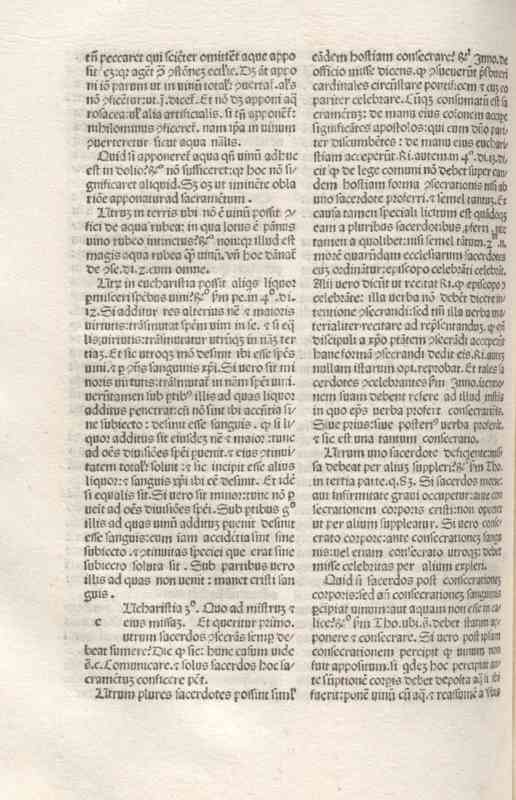 tñ peccaret qui sciẽter omitteret aque appo
sitõez: qr ageret ꝯ ꝯstõnez ecclie. Dz at apo
ni in pārum ut in vinū total' ꝯvertat. als
nō ꝯficeret: ut.j. dicet. Et nō dz apponi aq̄
rosacea: ul' alia artificialis. si tñ apponeret:
nihilominus ꝯficeret. nam ipa in vinum
ꝯverteretur sicut aqua nālis.
Quid si apponeret aqua qñ vinū adhuc
est in dolio: nō sufficeret: qr hoc nō si
gnificaret aliquid. Sz oz ut iminente obla
tiōe apponatur ad sacramētum.
Utrūz in terris ubi nō ē vinū possit ꝯ
fici de aqua rubea: in qua lotus ē pānus
vino rubeo intinctus: non: qr illud est
magis aqua rubea q̄ vinū. vñ hoc dānat
de ꝯse. di. 2. cum omne.
Utrz in eucharistia possit aliqs liquor
pmisceri spēbus vini: fm pe. in 4º. di.
12. Si additur res alterius nāe ⁊ maioris
virtutis: trāsmutat spēm vini in se. ⁊ si eq̄
lis virtutis: trāsmutatur utrūqz in nāz ter
tiaz. Et sic utroqz mō desinit ibi esse spēs
vini. ⁊ p ꝯñs sanguinis xpi. Si vero sit mi
noris virtutis: trāsmutat in nām spēi vini.
veruntamen sub ptibus illis ad quas liquor
additus penetrat: cū nō sint ibi accñtia si
ne subiecto: desinit esse sanguis. qr si li
quor additus sit eiusdez nāe ⁊ maior: tunc
ad oēs divisiōes spēi pvenit. ⁊ eius ꝯtinui
tatem total' solvit: ⁊ sic incipit esse alius
liquor: ⁊ sanguis xpi ibi cē desinit. Et idē
si equalis sit. Si vero sit minor: tunc nō p
veit ad oēs divisiões spēi. Sub ptibus gº
illis ad quas vinū additūz pvenit desinit
esse sanguis: cum iam accidētia sint sine
subiecto. ⁊ ꝯtinuitas speciei que erat sine
subiecto soluta sit. Sub partibus vero
illis ad quas non venit: manet cristi san
guis.
Ucharistia 3º. Quo ad mistruz ⁊
e eius missaz. Et queritur primo.
utrum sacerdos ꝯsecrās semp de-
beat sumere? Dic q̄ sic: hunc casum vide
s. e. Comunicare. ⁊ solus sacerdos hoc sa-
cramētuz conficere pōt.
Utrum plures sacerdotes possint simul'
eādem hostiam consecrare? Inno. de
officio misse dicens. q̄ ꝯsueverūt p̄sbiteri
cardinales circūstare pontificem ⁊ cuz eo
pariter celebrare. Cūqz consumatū est sa
crametūz: de manu eius colonem accipe
significātes apostolos: qui cum dño pari-
ter discumbētes: de manu eius euchari-
stiam acceperūt. Ri. autem. in 4º. di. 13. di-
cit q̄ de lege comuni nō debet super ean
dem hostiam forma ꝯsecrationis nisi ab
uno sacerdote proferri. ⁊ semel tantuz. Ex
causa tamen speciali licitum est quādoqz
eam a pluribus sacerdotibus pferri
tamen a quolibet: nisi semel tātum.
morē quarūndam ecclesiarum sacerdotes
cuz ordinātur: episcopo celebrāti celebrēt.
Alii vero dicūt ut recitat Ri. q̄ episcopo
celebrāte: illa verba nō debēt dicere in-
tentione ꝯsecrandi: sed tm̄ illa verba ma
terialiter recitare ad repsentanduz. q̄ cū
discipuli a xpo ptātem ꝯsecrādi acceperūt
hanc formā ꝯsecrandi dedit eis. Ri. autez
nullam istarum opi. reprobat. Et tales sa
cerdotes ꝯcelebrantes fm Inno. intentio
nem suam debent referre ad illud instās
in quo eps verba profert consecratiōis.
Sive prius: sive posterius verba proferāt.
⁊ sic est una tantum consecratio.
Utrum uno sacerdote deficiente: mis
sa debeat per aliuz suppleri? fm Tho.
in tertia parte. q. 83. Si sacerdos morte:
aut infirmitate gravi occupetur: ante con
secrationem corporis cristi: non oportet
ut per alium suppleatur. Si vero conse-
crato corpore: ante consecrationez sangui
nis: vel etiam consecrato utroqz: debet
misse celebritas per alium expleri.
Quid si sacerdos post consecrationez
corporis: sed añ consecrationez sanguinis
pcipiat vinum: aut aquam non esse in ca-
lice? fm Tho. ubi. s. debet statim ap-
ponere ⁊ consecrare. Si vero post ipsam
consecrationem percipit q̄ vinum non
fuit appositum. si qdez hoc percipiat an-
te sūptionē corpis debet deposita aq̄ si ibi
fuerit: ponē vinū cū aq̄. ⁊ reassumē a